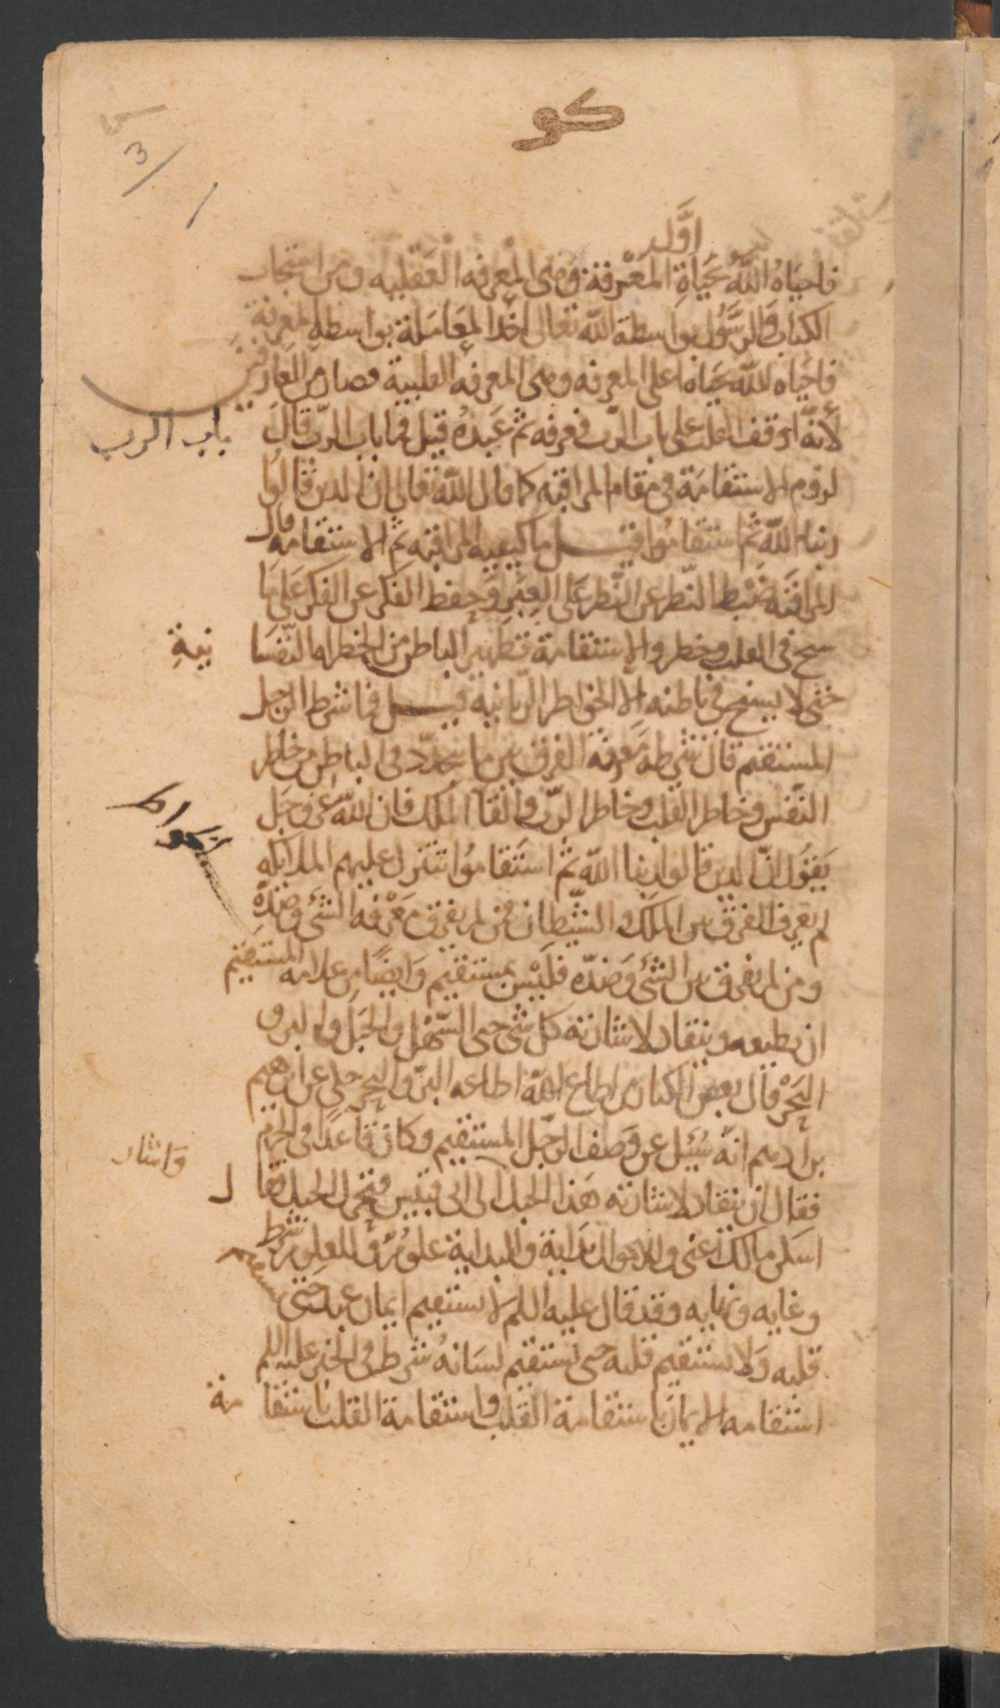 كو
3
اوّلـ
فاحياهُ اللّهُ بحَياةِ المعْرفة وَهى المعرفه العقليه ومن استجاب
الكتاب والرسُول بواسطة اللّه تعالى اخذ المعَاملة بواسطةِ المعرفة
فاحياه اللّه بحياة اعلى المعرفه وهى المعرفه القلبية فصار من العارفين
لأنهُ اوقف القلب على باب الربّ فعرفه ثم عَبدهُ قيل فما باب الربّ قالَ
باب الرب
لزوم الاستقامَة فى مقام المراقبه كما قال اللّه تعالى انّ الذين قالوا
ربنا اللّه ثم استقامُوا قيـــل ما كيفيه المراقبه ثم الاستقامه قال
المراقبَة ضبط النّظر عن النّظر عَلى الغير وَحفظ الفكر عن الفكر عَلى مَا
سنح فى القلب وخطر والاستقامة تطهير الباطن من الخطرات النّفسَا نيةِ
حتى لا يسنح فى باطنه الا الخواطر الربّانية قيـــل فما شرط الرجل
المستقيم قال شرطه مَعرفة الفرق بين ما يتجدّد فى الباطن من خاطر
النّفس وخاطر القلب وخاطر الربّ والقآ الملك فان اللّه عز وجَل
يَقوُل انّ الذين قالوا ربنا اللّه ثم استقامُوا تتنزل عليهم الملائكه
لم يعرف الفرق بين الملَك والشيطان فمن لم يفرق مَعْرفه الشئ وَضدّه
ومن لم يفرق بين الشئ وَضدّه فليْس بمستقيم وَايضًا من علامه المستقيم
ان يطيعه وينقاد لاشارته كل شئ حتى السّهْل والجبَل والبر و
البَحْر قال بعض الكبار من اطاع اللّه اطاعه البرّ والبحر حكى عن ابرهيم
بن ادهم انّه سُئل عن وَصف الرجل المستقيم وكان قاعدًا فى الحرم
فقال ان ينقاد لاشارته هَذا الجبل
وَاشار
اسكن ما لك
وغايه ونهايه وقد قال عليه السلم لا يستقيم ايمان عبد حتى يستقيم
قلبه وَلا يستقيم قلبه حتى يستقيم لسَانهُ شرط فى الخبر عليه السلم
استقامه الايمان باستقامة القلب واستقامة القلب باستقا مة